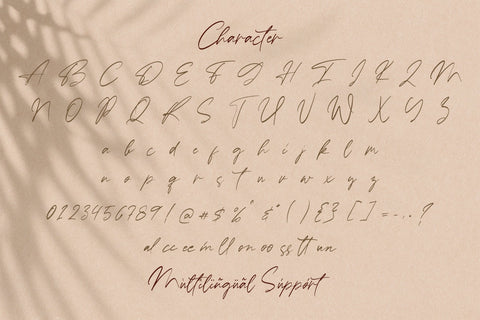 Character
A B C D E F G H I J K L M
N O P Q R S T U V W X Y Z
a b c d e f g h i j k l m
n o p q r s t u v w x y z
0123456789!@#$%&*(){}[]=-..?
al cc ee m ll on oo ss tt un
Multilingual Support